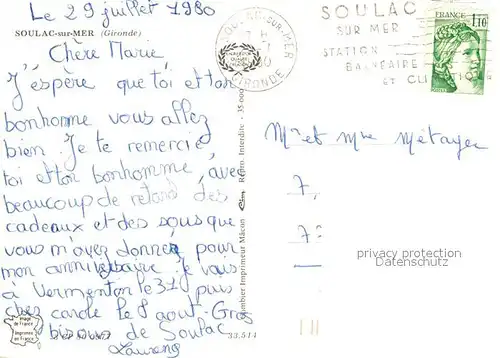 Le 29 juillet 1980
SOULAC-sur-MER (Gironde)
Chère Marie,
J'espère que toi et ton
bonhomme vous allez
bien. Je te remercie
toi et ton bonhomme, avec
beaucoup de retard des
cadeaux et des sous que
vous m'avez donner pour
mon anniversaire je vais
a Vermenton le 31 puis
chez carole le 8 aout. Gros
bisous de Soulac
SOULAC-SUR-MER
GIRONDE
SOULAC
SUR MER
STATION
BALNÉAIRE
et CLI
FRANCE
1,10
Mr et Mme Métayer
7,
7
privacy protection
Datenschutz
Combier Imprimeur Mâcon
Repro. Interdite
Image
de France
Imprimé
en France
33.514